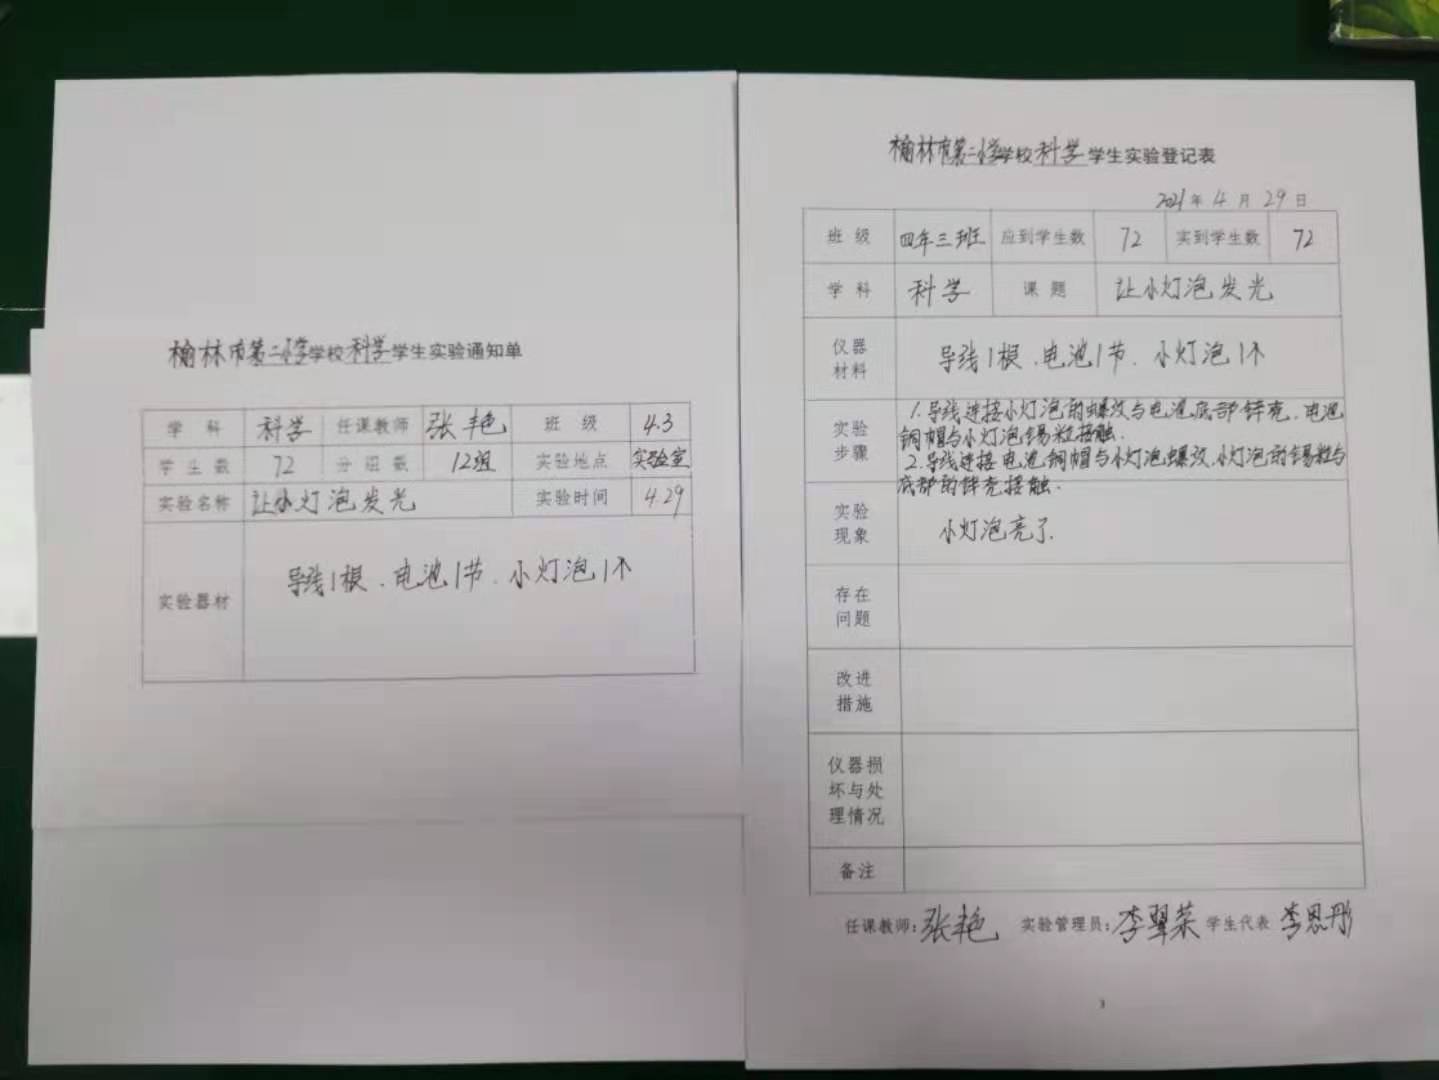 榆林市第二小学学校科学学生实验通知单
学 科 科学 任课教师 张艳 班 级 4.3
学 生 数 72 分 组 数 12组 实验地点 实验室
实验名称 让小灯泡发光 实验时间 4.29
实验器材 导线1根、电池1节、小灯泡1个
榆林市第二小学学校科学学生实验登记表
2021年4月29日
班 级 四年三班 应到学生数 72 实到学生数 72
学 科 科学 课 题 让小灯泡发光
仪器
材料
导线1根、电池1节、小灯泡1个
实验
步骤
1.导线连接小灯泡的螺纹与电池底部锌壳、电池
铜帽与小灯泡锡粒接触.
2.导线连接电池铜帽与小灯泡螺纹、小灯泡的锡粒与
底部的锌壳接触.
实验
现象
小灯泡亮了.
存在
问题
改进
措施
仪器损
坏与处
理情况
备注
任课教师:张艳 实验管理员:李翠荣 学生代表 李思彤
3